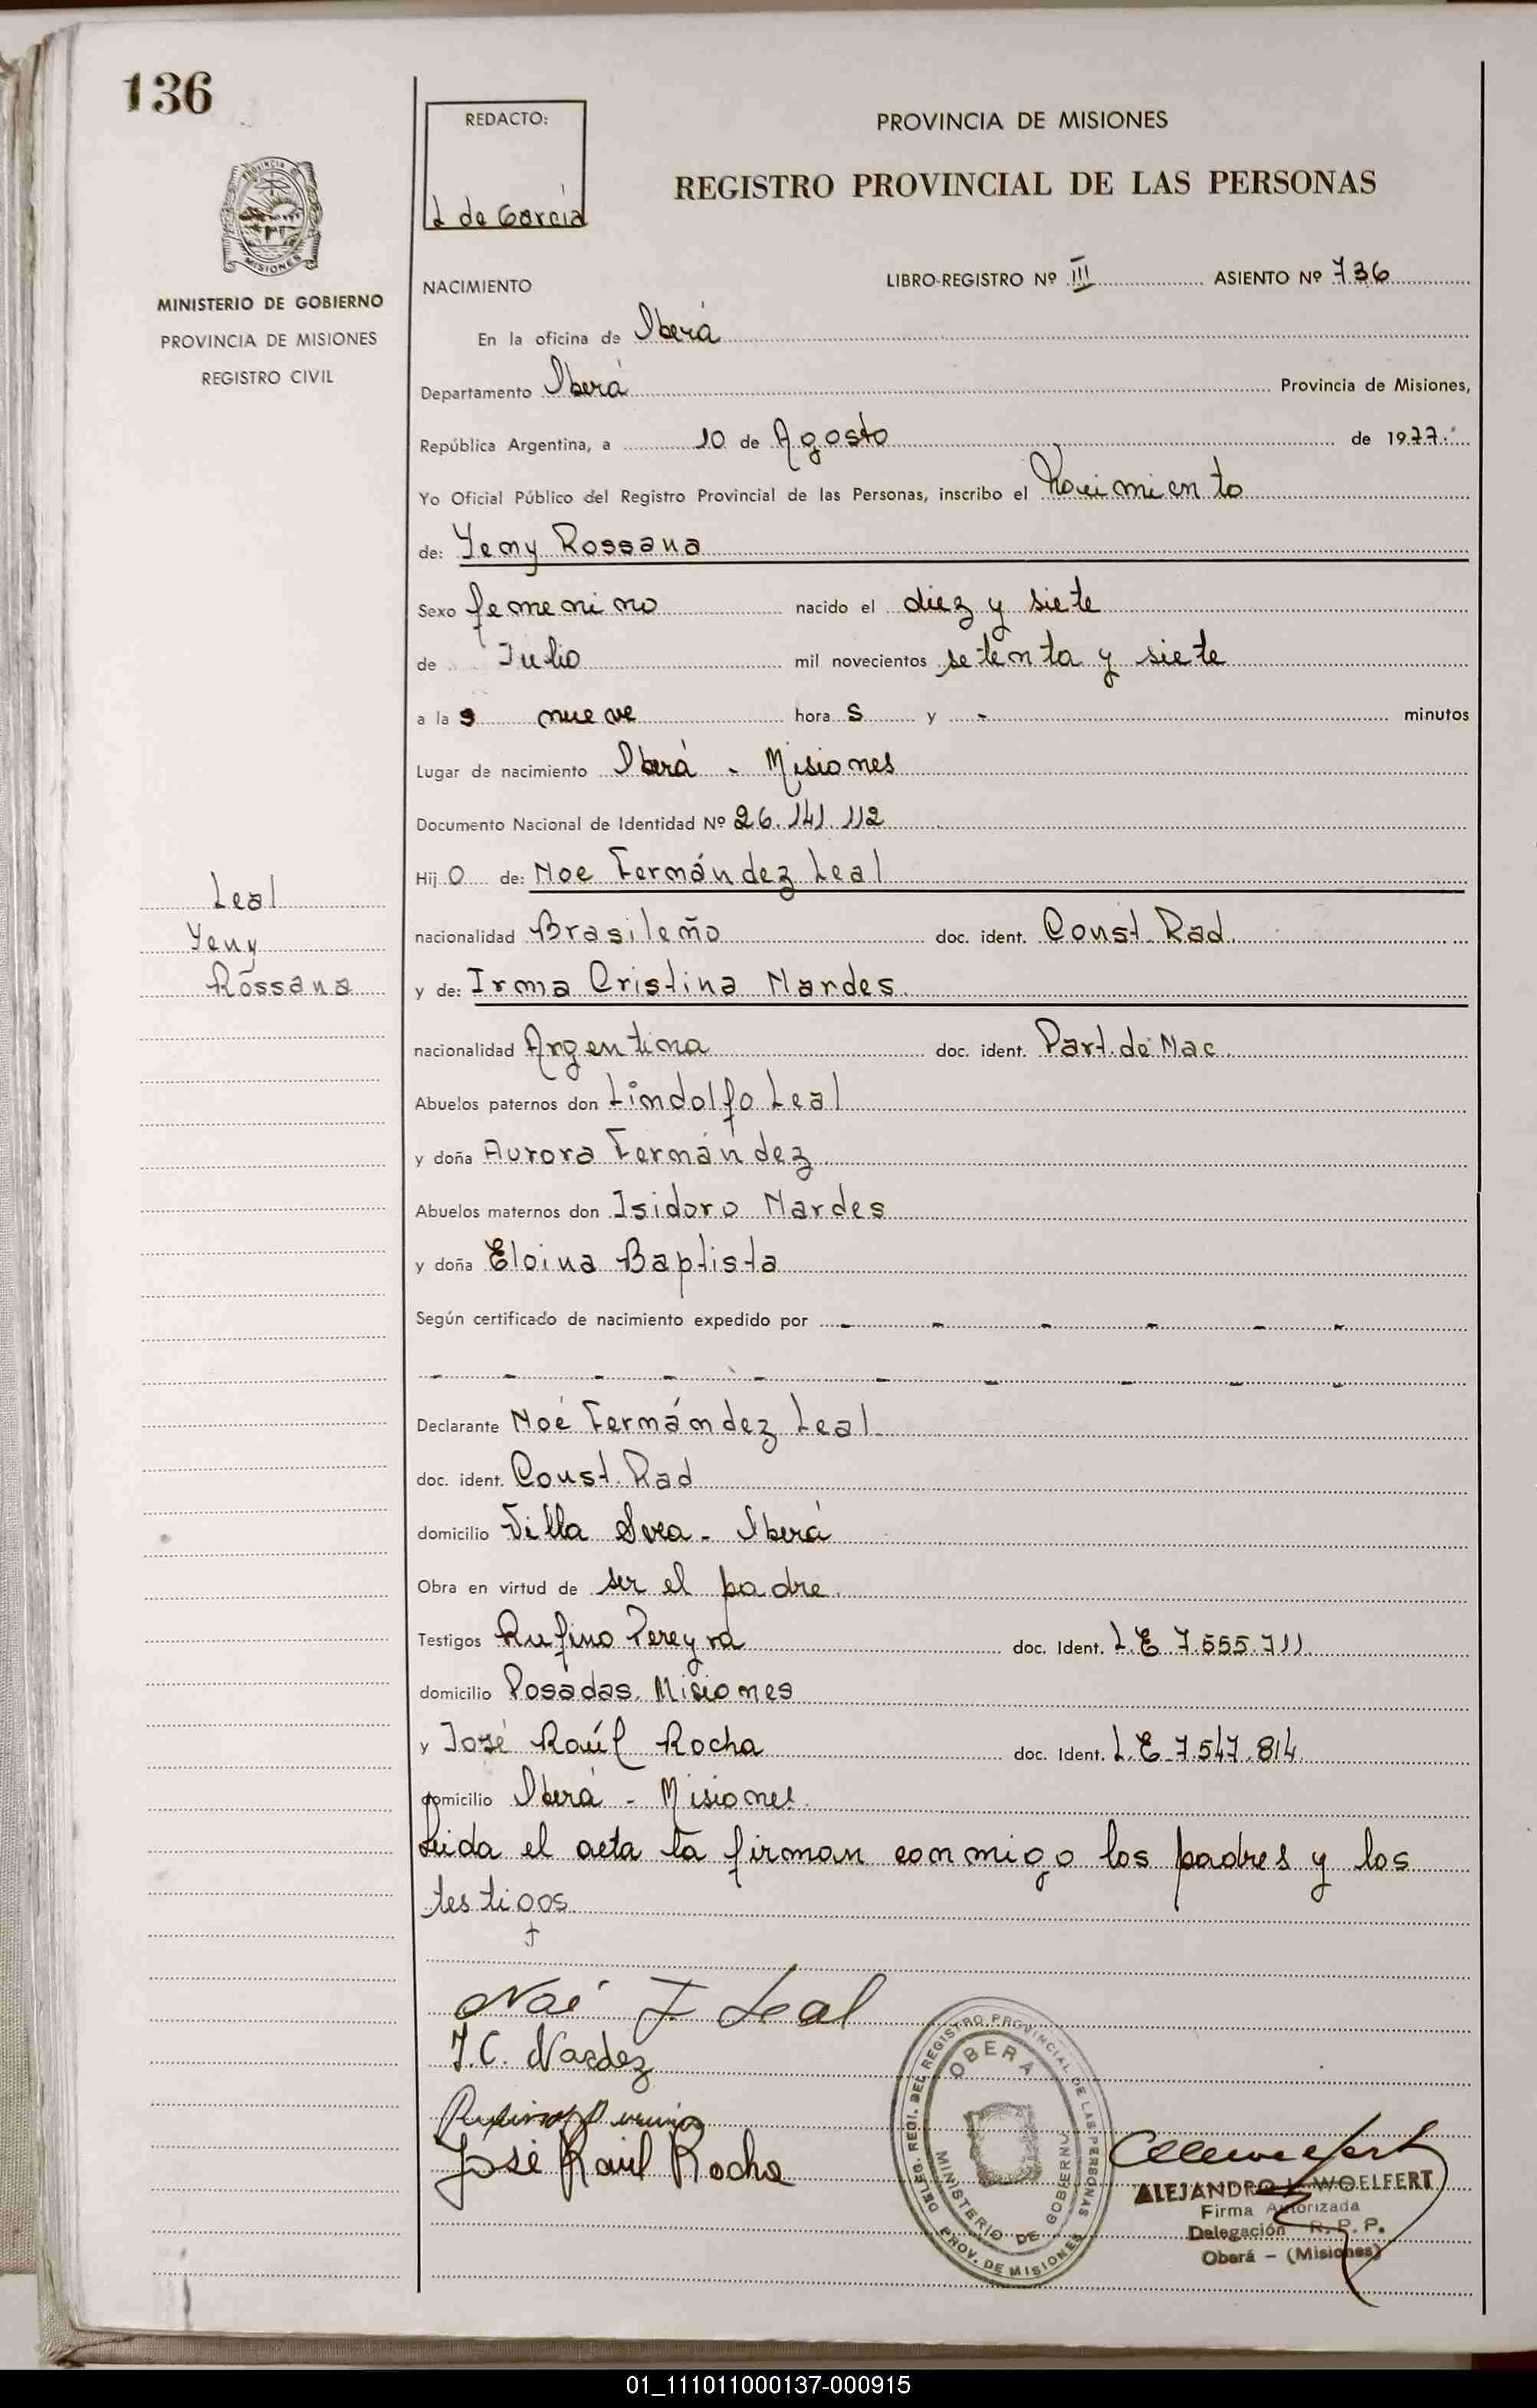 136
REDACTO:
L de García
PROVINCIA DE MISIONES
REGISTRO PROVINCIAL DE LAS PERSONAS
MINISTERIO DE GOBIERNO
PROVINCIA DE MISIONES
REGISTRO CIVIL
NACIMIENTO LIBRO-REGISTRO Nº III ASIENTO Nº 736
En la oficina de Oberá
Departamento Oberá Provincia de Misiones,
República Argentina, a 10 de Agosto de 1977.
Yo Oficial Público del Registro Provincial de las Personas, inscribo el Nacimiento
de: Yeny Rossana
Sexo femenino nacido el diez y siete
de Julio mil novecientos setenta y siete
a las nueve hora s y - minutos
Lugar de nacimiento Oberá - Misiones
Documento Nacional de Identidad Nº 26.141.112
Hij o de: Noe Fernández Leal
nacionalidad Brasileño doc. ident. Const. Rad.
y de: Irma Cristina Nardes.
nacionalidad Argentina doc. ident. Part. de Nac.
Abuelos paternos don Lindolfo Leal
y doña Aurora Fernández
Abuelos maternos don Isidoro Nardes
y doña Eloina Baptista
Según certificado de nacimiento expedido por - - - - - -
- - - - - - - - - -
Declarante Noé Fernández Leal
doc. ident. Const. Rad
domicilio Villa Svea - Oberá
Obra en virtud de ser el padre.
Testigos Rufino Pereyra doc. Ident. L.E 7.555.711.
domicilio Posadas. Misiones
y José Raúl Rocha doc. Ident. L.E 7.547.814.
domicilio Oberá - Misiones.
Leida el acta la firman conmigo los padres y los
testigos.
Leal
Yeny
Rossana
Noé F Leal
I.C. Nardez
José Raúl Rocha
DELEG. REGI. DEL REGISTRO PROVINCIAL DE LAS PERSONAS
OBERA
MINISTERIO DE GOBIERNO
PROV. DE MISIONES
ALEJANDRO WOELFERT
Firma Autorizada
Delegación R. P. P.
Oberá - (Misiones)
01_111011000137-000915